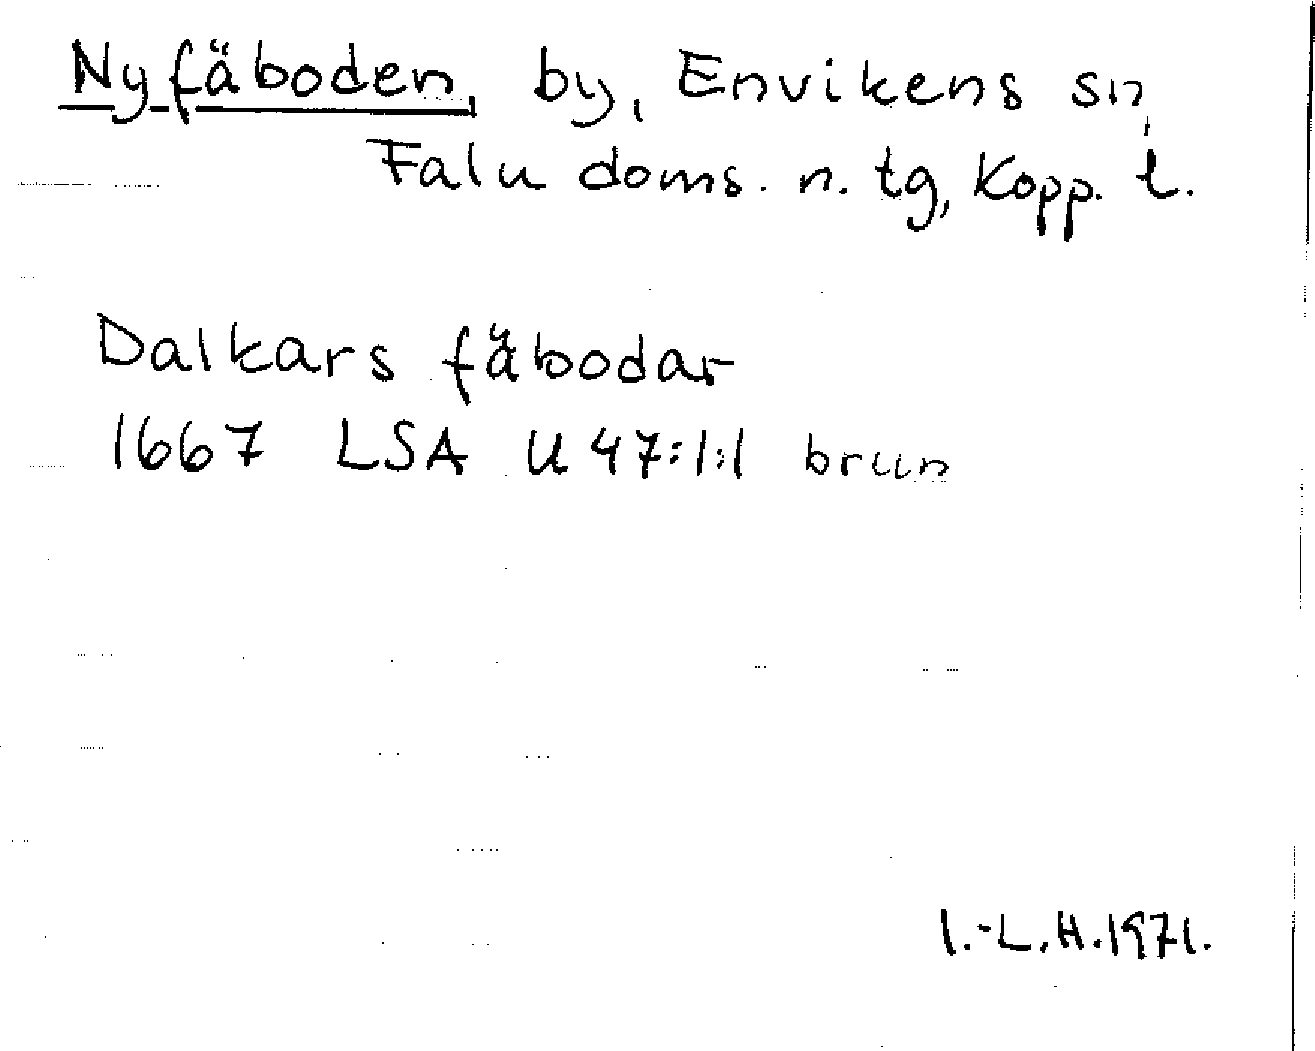 Nyfäboden, by, Envikens sn,
Falu doms. n. tg, Kopp. l.
Dalkars fäbodar
1667 LSA U 47:1:1 brun
I.-L.H.1971.